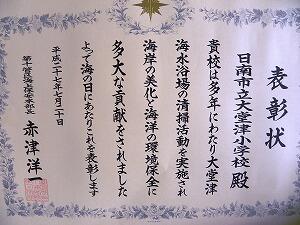 表彰状
日南市立大堂津小学校 殿
貴校は多年にわたり大堂津
海水浴場の清掃活動を実施され
海岸の美化と海洋の環境保全に
多大な貢献をされました
よって海の日にあたりこれを表彰します
平成二十七年七月二十日
第十管区海上保安本部長 赤津洋一